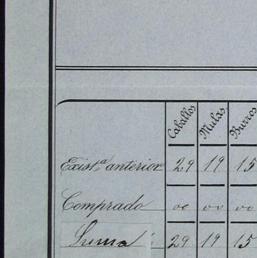 Caballos Mulas Burros
Exist.ª anterior 29 19 15
Comprado 00 00 00
Suma 29 19 15